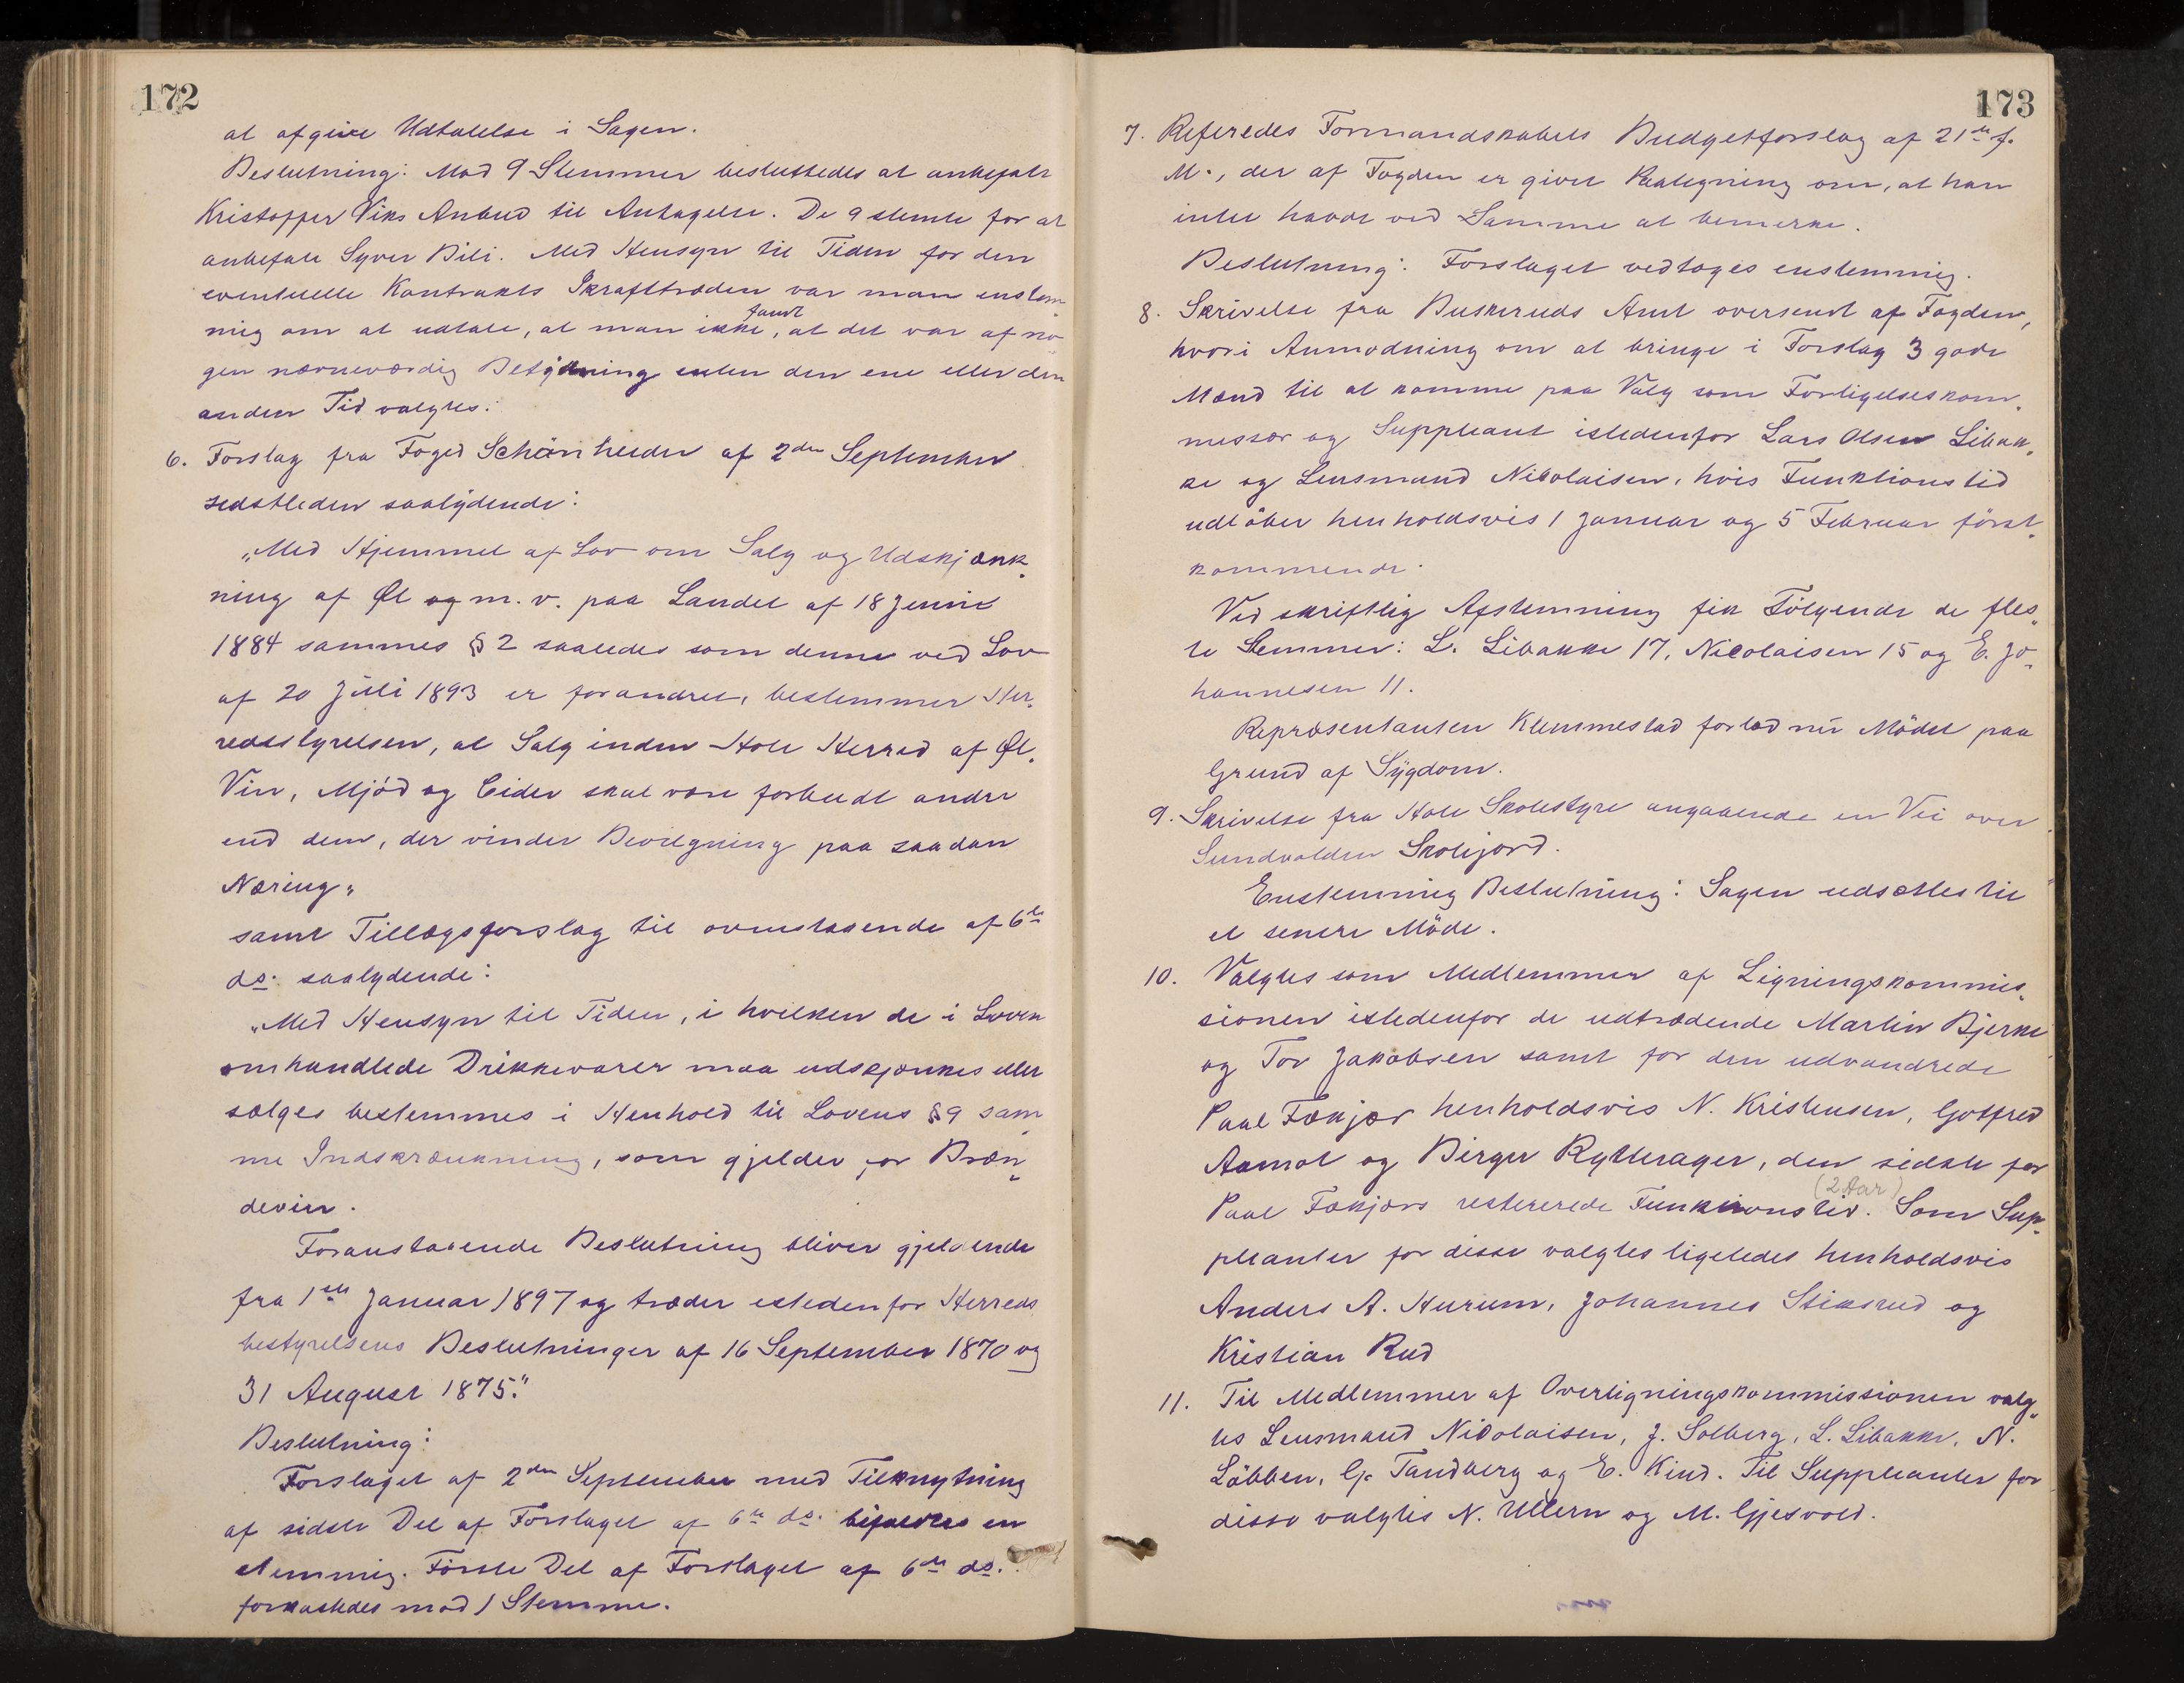 172
at afgive Udtalelse i Sagen.
Beslutning: Mod 9 Stemmer besluttedes at anbefale
Kristoffer Viks Anbud til Antagelse. De 9 stemte for at
anbefale Syver Bili. Med Hensyn til Tiden for den
eventuelle Kontrakts Ikrafttræden var man enstem„
mig om at udtale, at man ikke fandt, at det var af no„
gen nævneværdig Betydning enten den ene eller den
anden Tid valgtes.
6. Forslag fra Foged Schönheider af 2den September
sidstleden saalydende:
„Med Hjemmel af Lov om Salg og Udskjænk„
ning af Øl og m. v. paa Landet af 18 Juni
1884 sammes § 2 saaledes som denne ved Lov
af 20 Juli 1893 er forandret, bestemmer Her„
redsstyrelsen, at Salg inden Hole Herred af Øl,
Vin, Mjód og Cider skal være forbudt andre
end dem, der vinder Bevilgning paa saadan
Næring„
samt Tillægsforslag til ovenstaaende af 6te
ds. saalydende:
„Med Hensyn til Tiden, i hvilken de i Loven
omhandlede Drikkevarer maa udskjænkes eller
sælges bestemmes i Henhold til Lovens § 9 sam„
me Indskrænkning, som gjelder for Bræn„
devin.
Foranstaaende Beslutning bliver gjeldende
fra 1ste Januar 1897 og træder istedenfor Herreds
bestyrelsens Beslutninger af 16 September 1870 og
31 August 1875."
Beslutning:
Forslaget af 2den September med Tilknytning
af sidste Del af Forslaget af 6te ds. bifaldtes en
stemmig. Förste Del af Forslaget af 6te ds.
forkastedes mod 1 Stemme.
173
7. Referedes Formandskabets Budgetforslag af 21de f.
M., der af Fogden er givet Paategning om, at han
intet havde ved Samme at bemerke.
Beslutning: Forslaget vedtoges enstemmig.
8. Skrivelse fra Buskeruds Amt oversendt af Fogden,
hvori Anmodning om at bringe i Forslag 3 gode
Mænd til at komme paa Valg som Forligelseskom„
missær og Suppleant istedenfor Lars Olsen Libak„
ke og Lensmand Nikolaisen, hvis Funktionstid
udlöber henholdsvis 1 Januar og 5 Februar först„
kommende.
Ved skriftlig Afstemning fik Fölgende de fles„
te Stemmer: L. Libakke 17, Nicolaisen 15 og E. Jo„
hannesen 11.
Repræsentanten Klemmestad forlod nu Mödet paa
Grund af Sygdom.
9. Skrivelse fra Hole Skolestyre angaaende en Vei over
Sundvolden Skolejord.
Enstemmig Beslutning: Sagen udsættes til
et senere Möde.
10. Valgtes som Medlemmer af Ligningskommis„
sionen istedenfor de udtrædende Martin Bjerke
og Tor Jakobsen samt for den udvandrede
Paal Fækjær henholdsvis N. Kristensen, Gotfred
Aamot og Birger Rytterager, den sidste for
Paal Fækjærs resterende Funktionstid (2 Aar). Som Sup„
pleanter for disse valgtes ligeledes henholdsvis
Anders A. Hurum, Johannes Stiksrud og
Kristian Rud
11. Til Medlemmer af Overligningskommissionen valg„
tes Lensmand Nikolaisen, J. Solberg, L. Libakke, N.
Löbben, G. Tandberg og E. Kind. Til Suppleanter for
disse valgtes N. Ullern og M. Gjesvold.